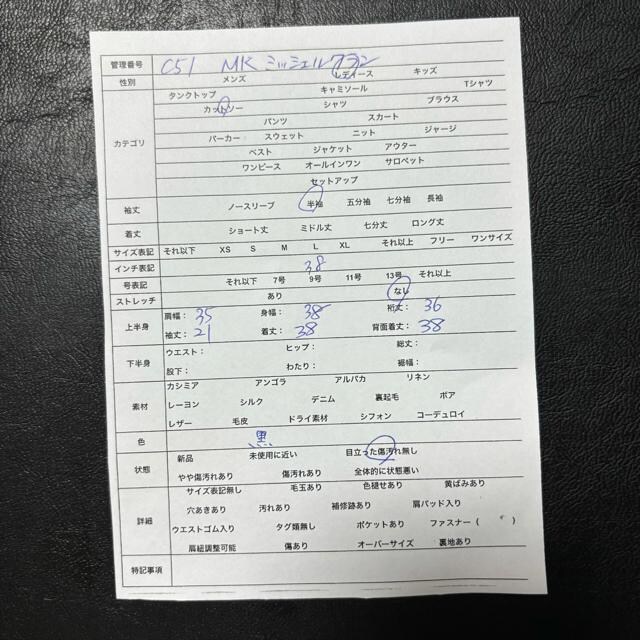 管理番号 C51 MK ミッシェルクラン
性別 メンズ レディース キッズ
カテゴリ
タンクトップ キャミソール Tシャツ
カットソー シャツ ブラウス
パンツ スカート
パーカー スウェット ニット ジャージ
ベスト ジャケット アウター
ワンピース オールインワン サロペット
セットアップ
袖丈 ノースリーブ 半袖 五分袖 七分袖 長袖
着丈 ショート丈 ミドル丈 七分丈 ロング丈
サイズ表記 それ以下 XS S M L XL それ以上 フリー ワンサイズ
インチ表記 38
号表記 それ以下 7号 9号 11号 13号 それ以上
ストレッチ あり なし
上半身 肩幅： 35 身幅： 38 裄丈： 36
袖丈： 21 着丈： 38 背面着丈： 38
下半身 ウエスト： ヒップ： 総丈：
股下： わたり： 裾幅：
素材 カシミア アンゴラ アルパカ リネン
レーヨン シルク デニム 裏起毛 ボア
レザー 毛皮 ドライ素材 シフォン コーデュロイ
色 黒
状態 新品 未使用に近い 目立った傷汚れ無し
やや傷汚れあり 傷汚れあり 全体的に状態悪い
詳細 サイズ表記無し 毛玉あり 色褪せあり 黄ばみあり
穴あきあり 汚れあり 補修跡あり 肩パッド入り
ウエストゴム入り タグ類無し ポケットあり ファスナー（ ）
肩紐調整可能 傷あり オーバーサイズ 裏地あり
特記事項